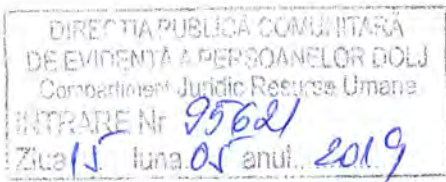 DIRECȚIA PUBLICĂ COMUNITARĂ
DE EVIDENȚĂ A PERSOANELOR DOLJ
Compartiment Juridic Resurse Umane
INTRARE Nr 95621
Ziua 15 luna 05 anul.. 2019